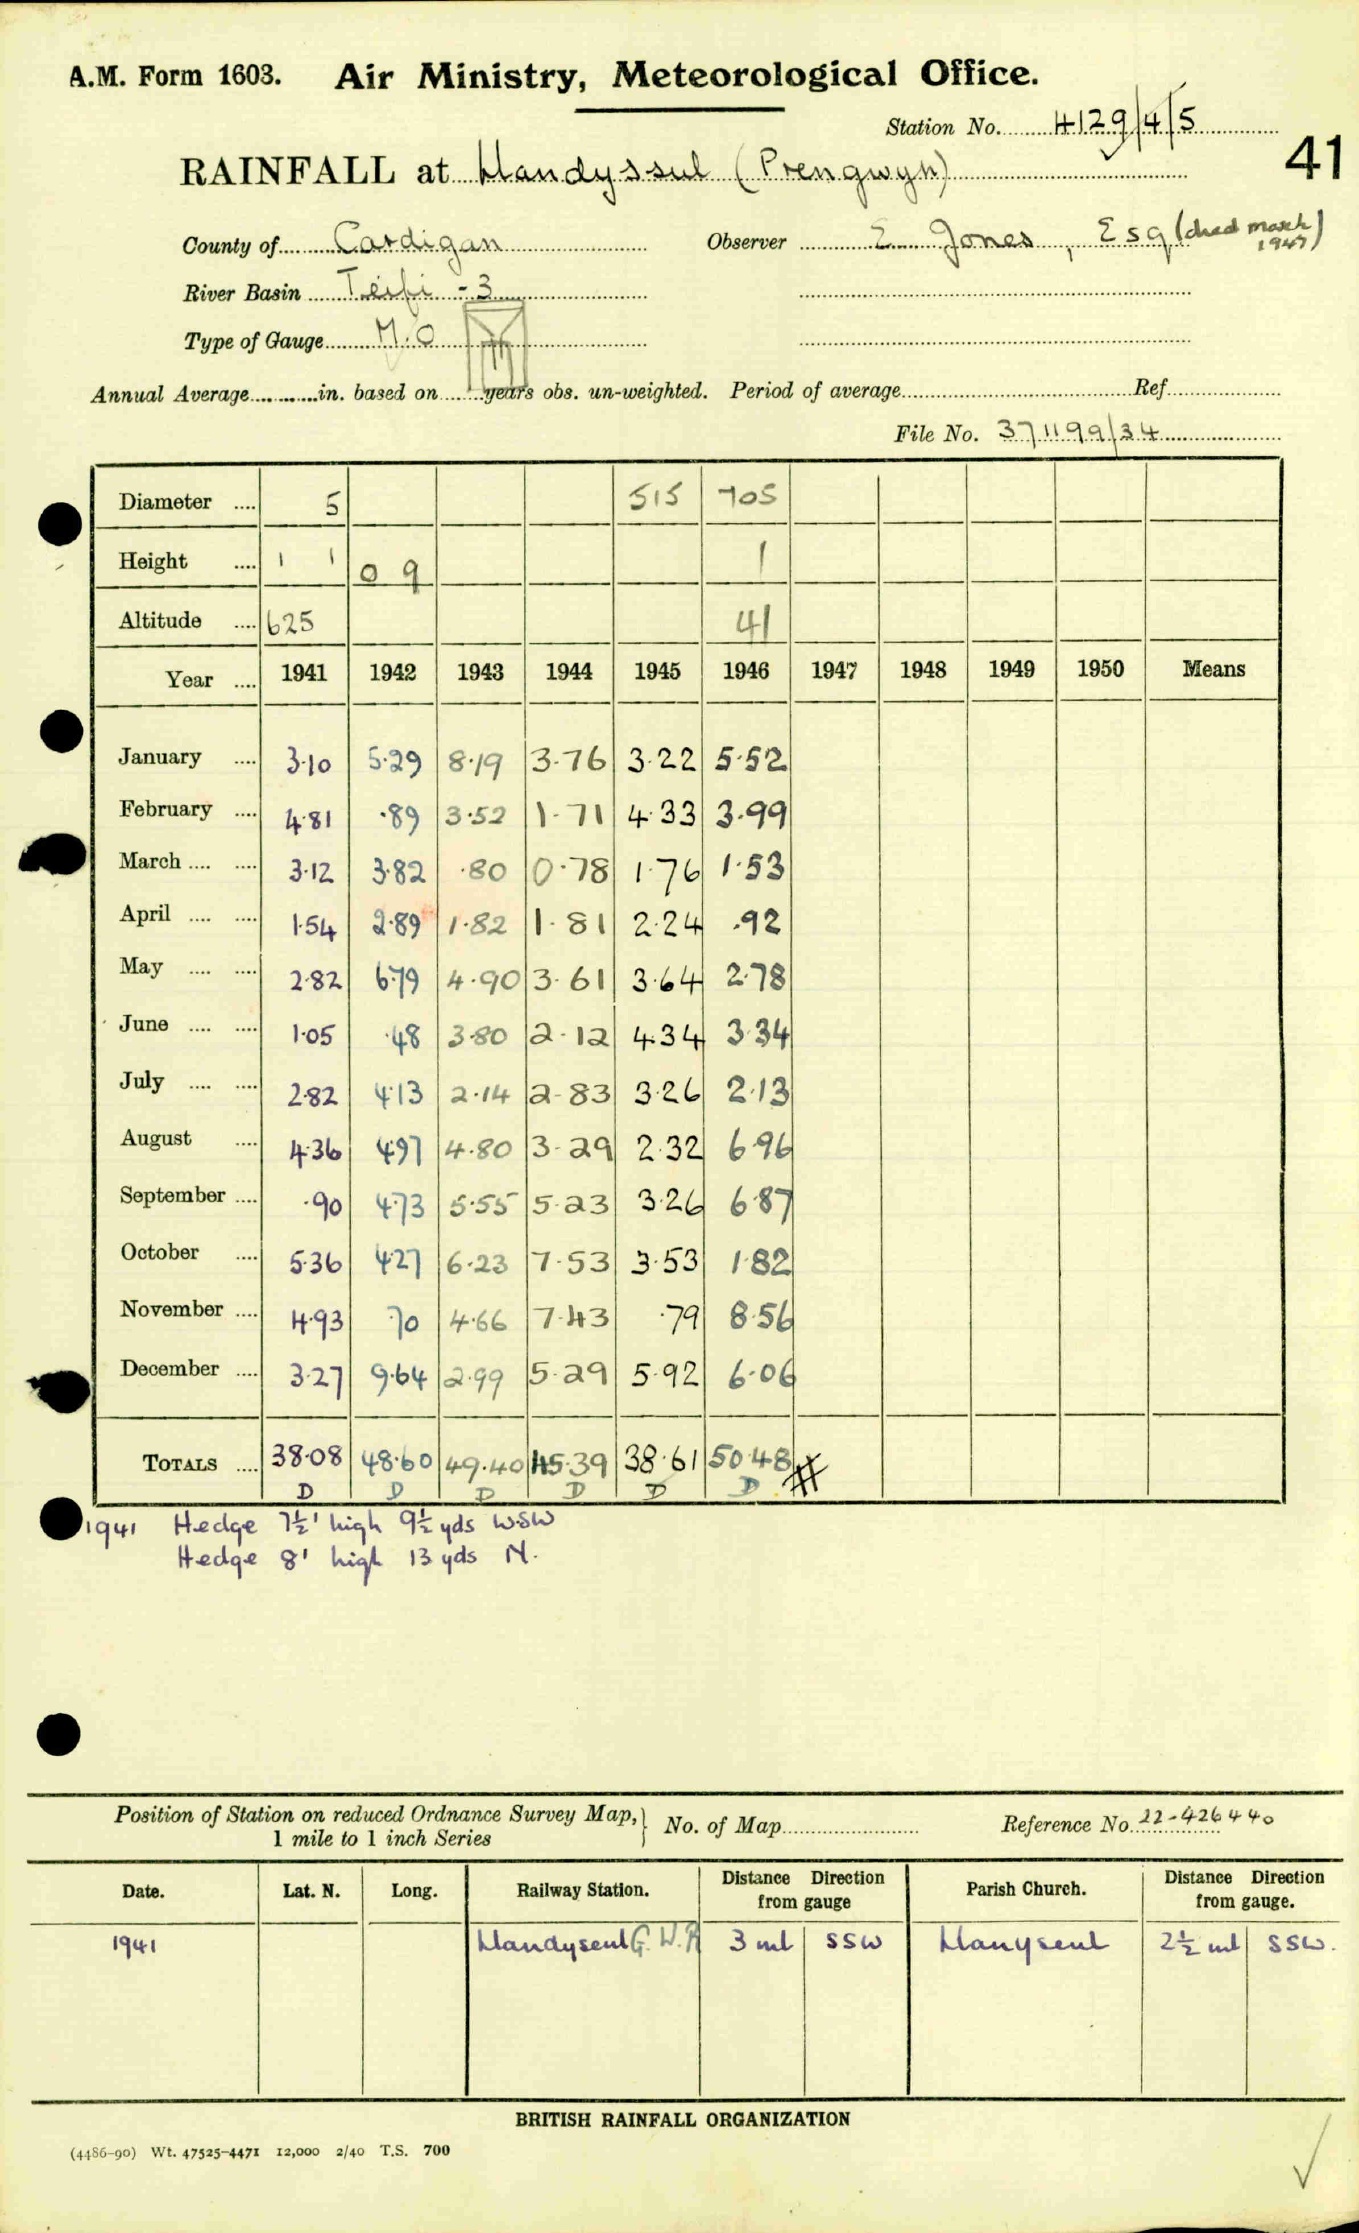 A.M. Form 1603. Air Ministry, Meteorological Office.
Station No. 4129/4/5
41
RAINFALL at Llandyssul (Prengwyn)
County of Cardigan Observer E. Jones, Esq (died March 1947)
River Basin Teifi - 3
Type of Gauge M.O
Annual Average in. based on years obs. un-weighted. Period of average Ref
File No. 371199/34
Diameter 5 515 705
Height 1 1 0 9 1
Altitude 625 41
Year 1941 1942 1943 1944 1945 1946 1947 1948 1949 1950 Means
January 3·10 5·29 8·19 3·76 3·22 5·52
February 4·81 ·89 3·52 1·71 4·33 3·99
March 3·12 3·82 ·80 0·78 1·76 1·53
April 1·54 2·89 1·82 1·81 2·24 ·92
May 2·82 6·79 4·90 3·61 3·64 2·78
June 1·05 ·48 3·80 2·12 4·34 3·34
July 2·82 4·13 2·14 2·83 3·26 2·13
August 4·36 4·97 4·80 3·29 2·32 6·96
September ·90 4·73 5·55 5·23 3·26 6·87
October 5·36 4·27 6·23 7·53 3·53 1·82
November 4·93 ·70 4·66 7·43 ·79 8·56
December 3·27 9·64 2·99 5·29 5·92 6·06
TOTALS 38·08 48·60 49·40 45·39 38·61 50·48 #
D D D D D D
1941 Hedge 7½' high 9½ yds WSW
Hedge 8' high 13 yds N.
Position of Station on reduced Ordnance Survey Map, 1 mile to 1 inch Series } No. of Map Reference No. 22-426440
Date. Lat. N. Long. Railway Station. Distance Direction from gauge Parish Church. Distance Direction from gauge.
1941 Llandyseul G.W.R 3 ml SSW Llanyseul 2½ ml SSW.
BRITISH RAINFALL ORGANIZATION
(4486-90) Wt. 47525-4471 12,000 2/40 T.S. 700